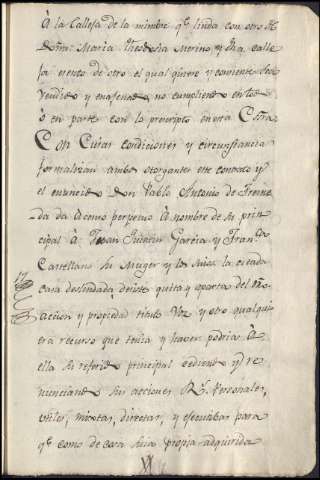 à la Calleja de la mimbre qe. linda con otro de
Doña Maria Theodosia Merino y dha calle
ja mento de otro el qual quiere y consiente sea
Vendido y enagenado no cumpliendo en todo
ò en parte con lo prescripto en esta Escra.
Con Cuias condiciones y circunstancias
formalizan ambos otorgantes este contrato y
el enunciado Don Pablo Antonio de Frenne
da da à censo perpetuo à nombre de su prin
cipal à Juan Quintin Garcia y Franca.
Castellano su Muger y los suios la citada
casa deslindada desiste quita y aparta del dro.
Accion y propiedad titulo Voz y otro qualqui
era recurso que tenia y haver podria à
ella su referido principal cediendo y re
nunciando sus acciones Rs. Personales,
utiles, mixtas, directas, y executibas para
qe. como de cosa suia propia adquirida